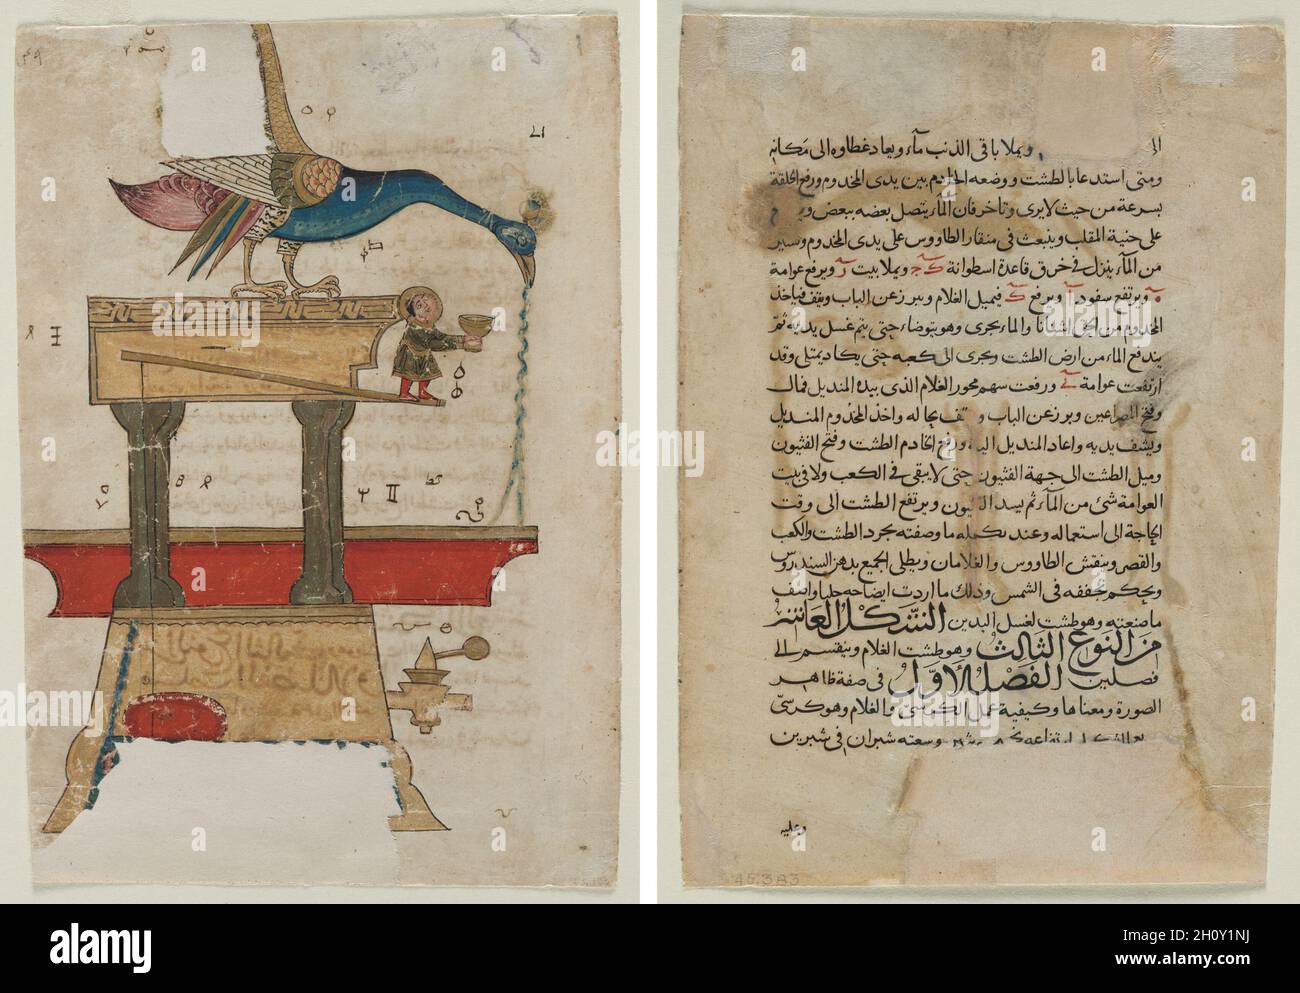 ويملا باقى الذنب ماء ويعاد غطاوه الى مكانه
ومتى استدعا بالطشت ووضعه الخادم بين يدى المخدوم ورفع الحلقة
بسرعة من حيث لا يرى وتاخر فان الماء يتصل بعضه ببعض
على حنية المقلب وينبعث فى منقار الطاووس على يدى المخدوم وسير
من الماء ينزل فى خرق قاعدة اسطوانة ويملا بيت ويرفع عوامة
ويرتفع سفود ويرفع فيميل الغلام ويبرز عن الباب ويقف فياخذ
المخدوم من الحق اشنانا والماء يجرى وهو يتوضاء حتى يتم غسل يديه ثم
يندفع الماء من ارض الطشت ويجرى الى كعبه حتى يكاد يمتلى وقد
ارتفعت عوامة ورفعت سهم محور الغلام الذى بيده المنديل فمال
وفتح المصراعين وبرز عن الباب ووقف بحاله واخذ المخدوم المنديل
وينشف يديه واعاد المنديل اليه ورفع الخادم الطشت وفتح الفثيون
وميل الطشت الى جهة الفثيون حتى لا يبقى فى الكعب ولا فى بيت
العوامة شئ من الماء ثم يسد الفثيون ويرتفع الطشت الى وقت
الحاجة الى استعماله وعند تكمله ما وصفته يجرد الطشت والكعب
والقصر وينقش الطاووس والغلامان ويطلى الجميع بدهن السندروس
ويحكم تجففه فى الشمس وذلك ما اردت ايضاحه جليا واشف
ما صنعته وهو طشت لغسل اليدين الشكل العاشر
من النوع الثالث وهو طشت الغلام وينقسم الى
فصلين الفصل الاول فى صفة ظاهر
الصورة ومعناها وكيفية عمل الكرسى والغلام وهو كرسى
وسعته شبران فى شبرين
وعليه
45.383
alamy
Image ID: 2H0Y1NJ
www.alamy.com